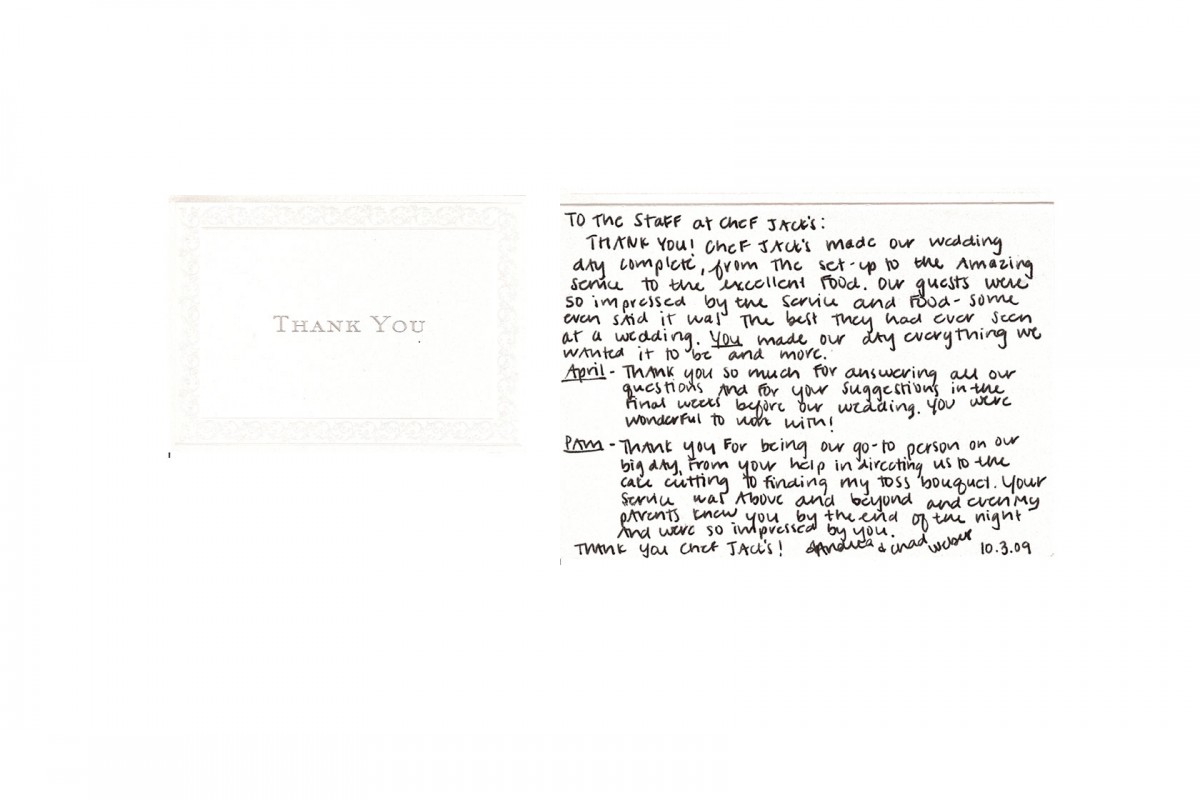 THANK YOU
TO THE STAFF at CHEF JACK'S:
THANK YOU! CHEF JACK'S made our wedding
day complete, from the set-up to the Amazing
service to the excellent food. Our guests were
so impressed by the service and food- some
even said it was the best they had ever seen
at a wedding. You made our day everything we
wanted it to be and more.
April - Thank you so much for answering all our
questions and for your suggestions in the
final weeks before our wedding. You were
wonderful to work with!
PAM - Thank you for being our go-to person on our
big day, from your help in directing us to the
cake cutting to finding my toss bouquet. Your
service was above and beyond and even my
parents knew you by the end of the night
and were so impressed by you.
THANK YOU CHEF JACK'S! Andrea & Chad Weber 10.3.09